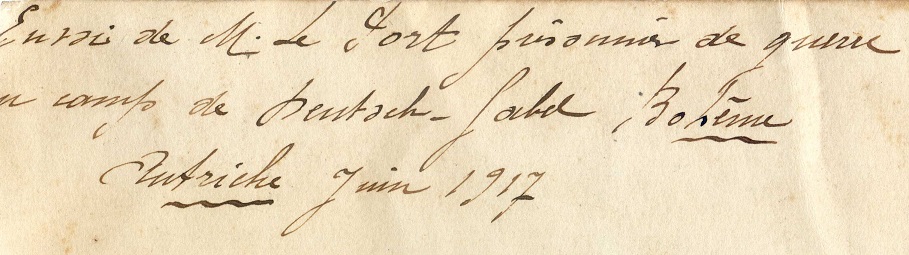 Envoi de M. Le Fort prisonnier de guerre
u camp de Deutsch-Gabel Bohême
Autriche Juin 1917